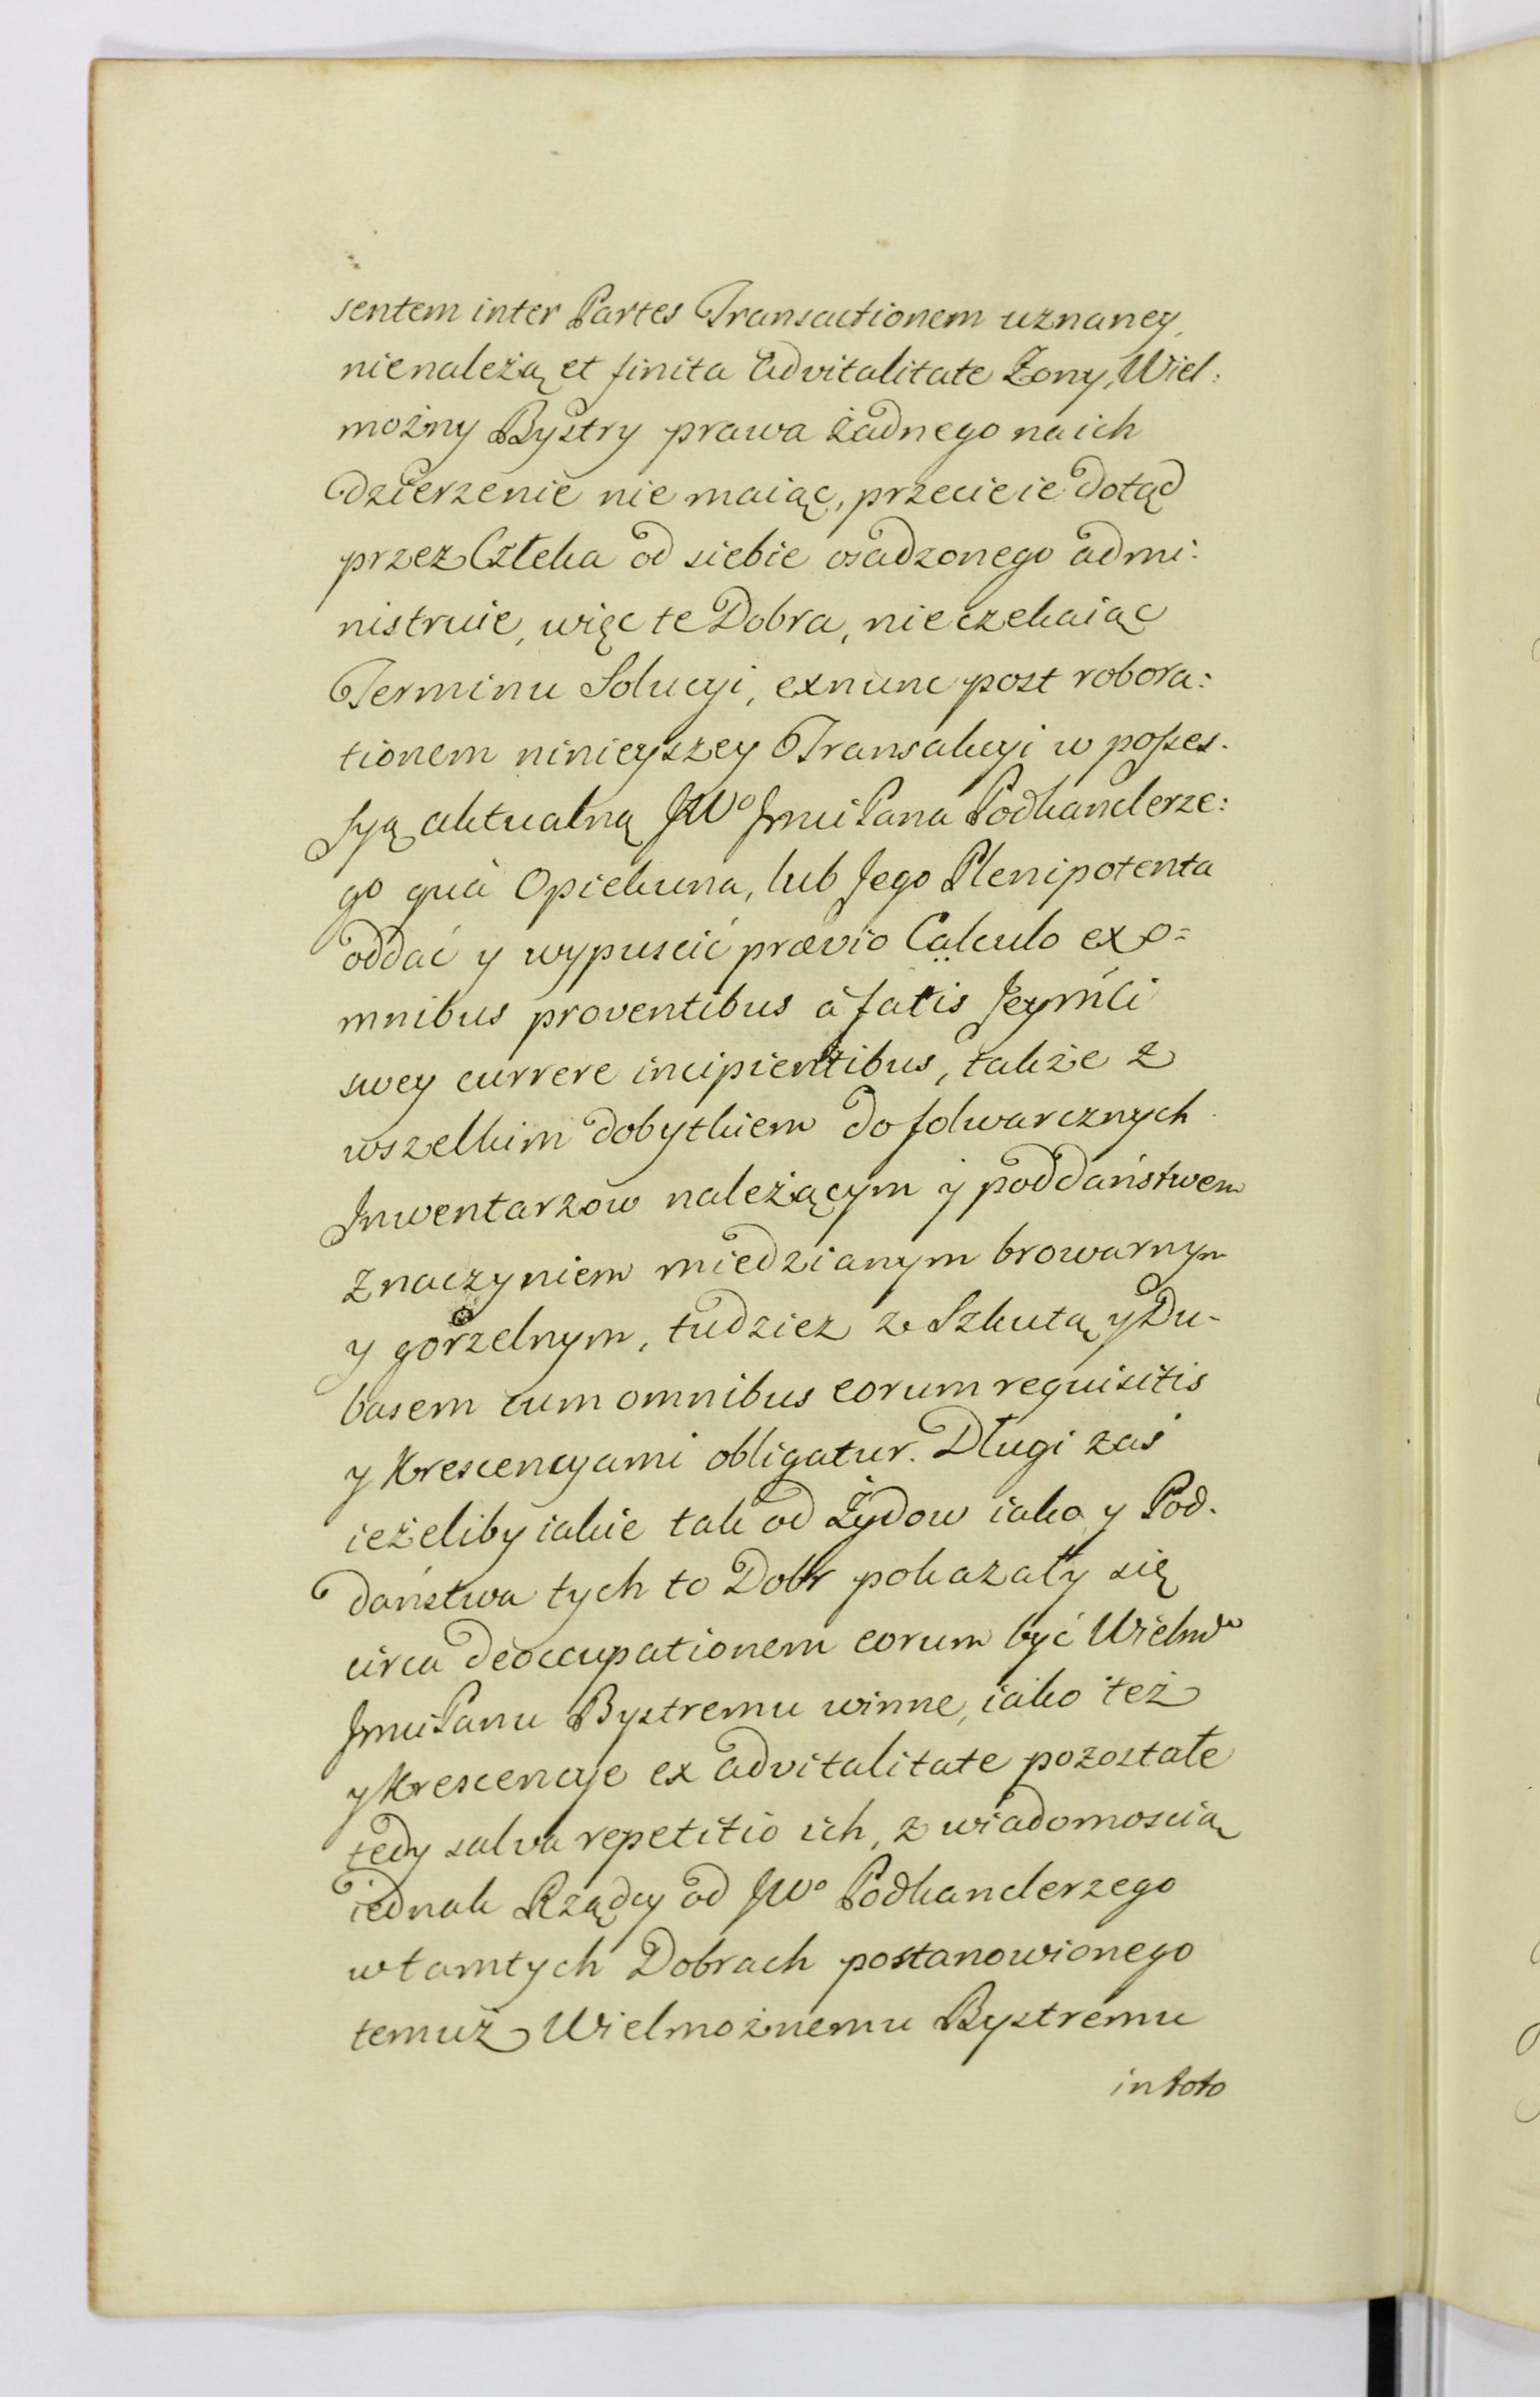 sentem inter Partes Transactionem uznaney,
nienależą et finita advitalitate Zony, Wiel:
możny Bystry prawa żadnego na ich
dzierzenie nie maiąc, przecie ie dotąd
przez Człeka od siebie osadzonego admi:
nistruie, więc te Dobra, nie czekaiąc
Terminu Solucyi, exnunc post robora:
tionem ninieyszey Transakcyi w posses-
syą aktualną JWo Jmci Pana Podkanclerze:
go quà Opiekuna, lub Jego Plenipotenta
oddać y wypuscić prævio Calculo ex o=
mnibus proventibus à fatis Jeymci
swey currere incipientibus, także z
wszelkim dobytkiem do folwarcznych
Inwentarzow należącym y poddaństwem
z naczyniem miedzianym browarnym
y gorzelnym, tudziez ze Szkutą y Du-
basem cum omnibus eorum requisitis
y Krescencyami obligatur. Długi zaś
ieżeliby iakie tak od Żydow iako y Pod-
daństwa tych to Dobr pokazały się
circa deoccupationem eorum być Wielmo
Jmci Panu Bystremu winne, iako też
y Krescencye ex advitalitate pozostałe
tedy salva repetitio ich, z wiadomoscią
iednak Rządcy od JWo Podkanclerzego
w tamtych Dobrach postanowionego
temuż Wielmożnemu Bystremu
in toto